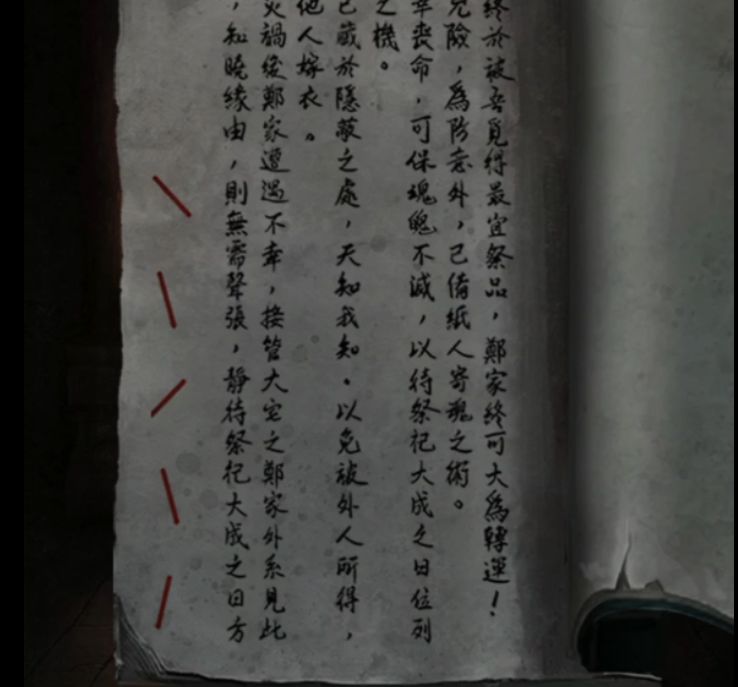 終於被吾覓得最宜祭品，鄭家終可大為轉運！
兇險，為防意外，已備紙人寄魂之術。
幸喪命，可保魂魄不滅，以待祭祀大成之日位列
之機。
已藏於隱蔽之處，天知我知。以免被外人所得，
他人嫁衣。
災禍後鄭家遭遇不幸，接管大宅之鄭家外系見此
，知曉緣由，則無需聲張，靜待祭祀大成之日方